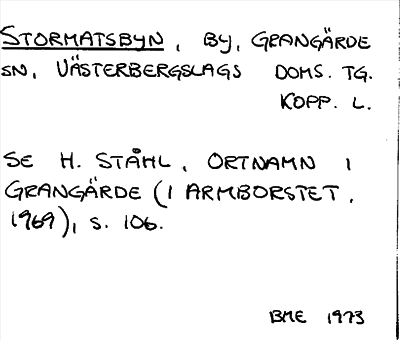 STORMATSBYN, BY, GRANGÄRDE
SN, VÄSTERBERGSLAGS DOMS. TG.
KOPP. L.
SE H. STÅHL, ORTNAMN I
GRANGÄRDE (I ARMBORSTET,
1969), S. 106.
BME 1973